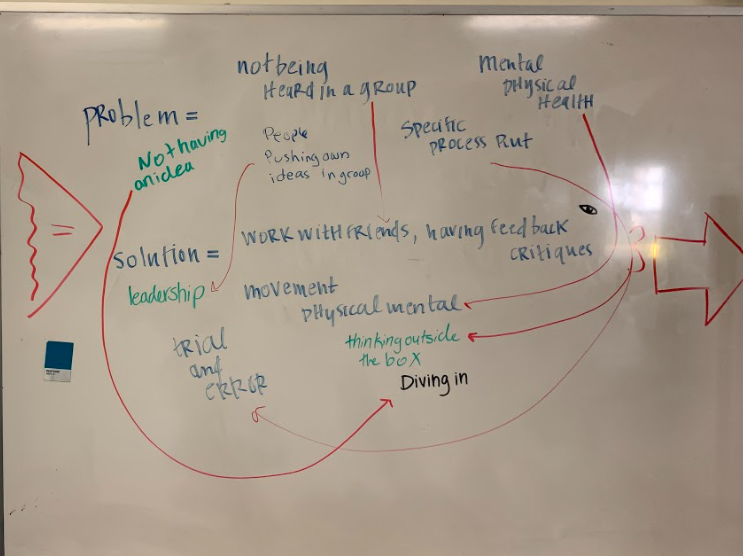 notbeing
HEARD in a gROUP
Mental
pHysical
HEALtH
pRoblem =
Not having
an idea
People
Pushing own
ideas in group
Specific
pRocess Rut
=
solution =
WORK WITH FRIENDS, having feedback
CRitiques
leadership
movement
pHysical mental
tRIAL
and
ERROR
thinking outside
the box
Diving in